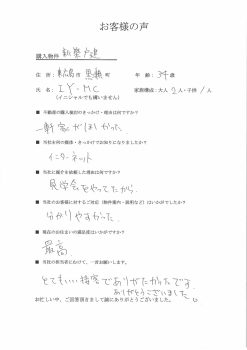 お客様の声
購入物件 新築戸建
住 所： 東広島市 黒瀬町 年 齢：34歳
氏 名： I Y・MC 家族構成：大人 2人・子供 1人
(イニシャルでも構いません)
■ 不動産の購入検討のきっかけ・理由は何ですか？
一軒家がほしかった。
■ 当社をお知りになりましたか？
インターネット
■ 当社に媒介を依頼した理由は何ですか？
見学会をやってたから。
■ 当社のお客様に対するご対応（物件案内・説明など）はいかがでしたか？
分かりやすかった。
■ 現在のお住まいの満足度はいかがですか？
最高
■ 当社の担当者にむけて、一言お願いします。
とてもいい接客でありがたかったです。
ありがとうございました。
お忙しい中、ご回答頂きまして誠にありがとうございました。